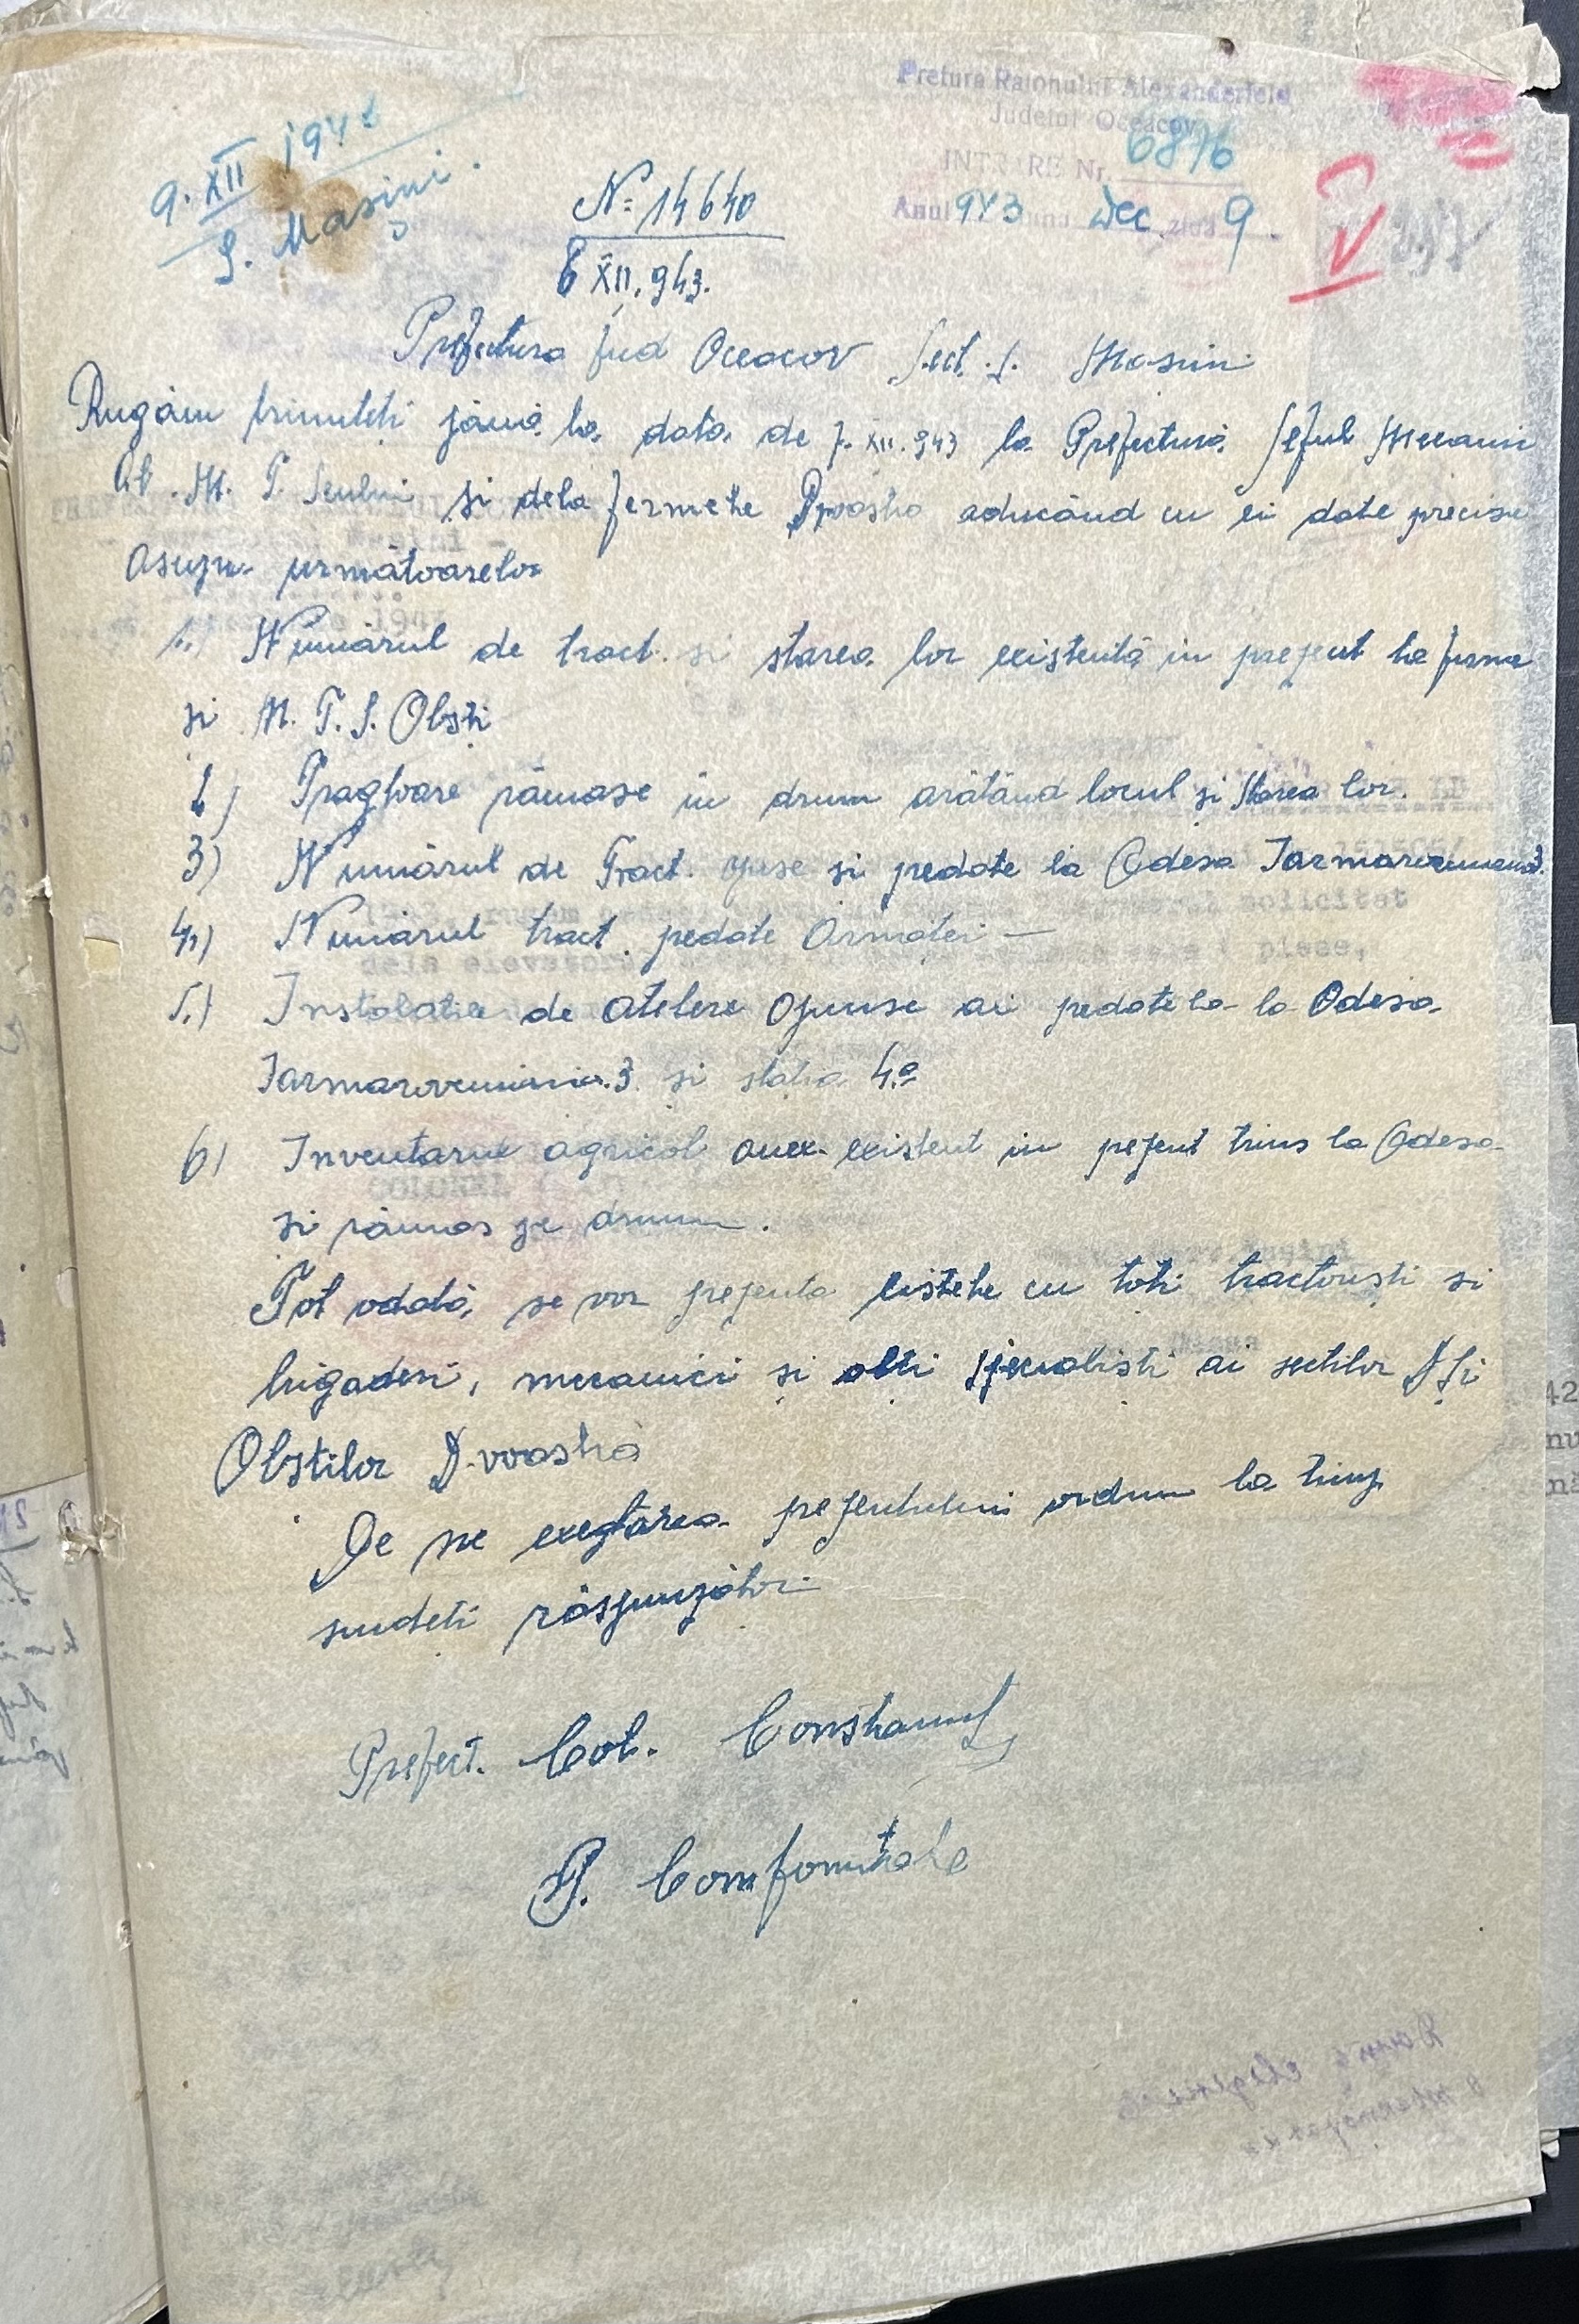 Prefura Raionului Alexanderfeld
Judetul Oceacov
INTRARE Nr. 6876
Anul 943 Luna Dec. ziua 9.
9. XII 194
S. Mașini.
№ 14640
6 XII. 943.
Prefectura Jud Oceacov Sect. S. Masini
Rugăm trimiteti până la data de 7. XII. 943 la Prefectură Șeful Mecanic
al M. T. Seului și dela fermele Dvoastra aducând cu ei date precise
asupra următoarelor
1.) Numărul de tract. si starea lor existentă in prezent la ferme
si M. T. S. Obști
2) Tractoare rămase in drum arătând locul și starea lor.
3) Numărul de Tract. spuse si predate la Odesa
4.) Numărul tract. predate Armatei —
5.) Instalatie de atelere spuse ai predate la la Odesa
3. si statia 4.a
6) Inventarul agricol existent in prezent trims la Odesa
si rămas pe drum.
Tot odată, se vor prezenta listele cu toti tractoriști si
brigaderi, mecanici și alti specialisti ai sectilor Și
Obstilor D-voastră
De ne exectarea prezentului ordin la timp
sundeti răspunzători
Prefect. Col.
P. Comfomitate